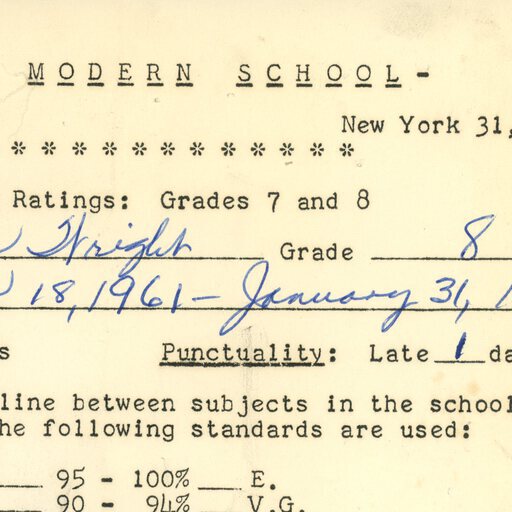 MODERN SCHOOL-
New York 31,
* * * * * * * * * * * *
Ratings: Grades 7 and 8
Wright Grade 8
18, 1961 - January 31, 1
s Punctuality: Late 1 da
line between subjects in the school
he following standards are used:
95 - 100% E.
90 - 94% V.G.